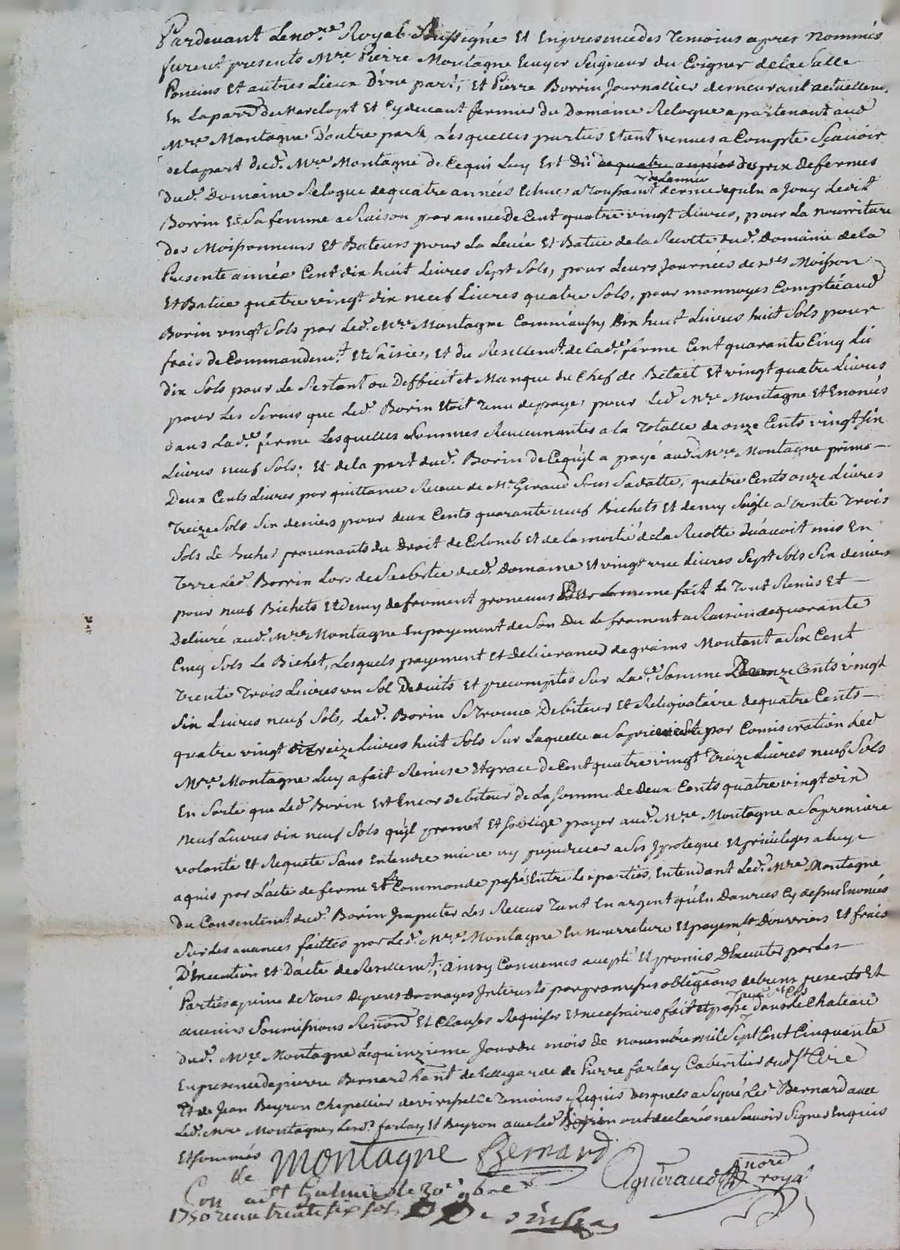 Pardevant Le no.re Royal Soussigné Et En presence des Temoins apres nommés
furent presents M.re Pierre Montagne Ecuyer Seigneur du Poigner de La Salle
Poncins et autres Lieux D'une part, Et Pierre Borrin Journallier demeurant actuellem.
En La par. de Marclopt Et Cy devant fermier du Domaine Relogue apartenant aud.
M.re Montagne D'autre part Lesquelles parties Etant venues a Compte Scavoir
de la part dud. M.re Montagne De Ce qui Luy Est Dû de quatre années du prix de fermes
dud. Domaine Relogue de quatre années Echues a Toussaint derniere qu'en a Jouy Led.
de L'année
Borrin Et Sa femme a Raison par année de Cent quatre vingt Livres, pour La nourriture
des Moissonneurs Et Bateurs pour La Levée Et Batue de la Recolte dud. Domaine de la
Presente année Cent dix huit Livres Sept Sols, pour Leurs Journées de Moisson
Et Batue quatre vingt dix neuf Livres quatre Sols, pour monnoyes Comptée aud.
Borin vingt Sols par Led. M.re Montagne Dix huit Livres huit Sols pour
frais de Commandem.t Et Saisies, Et du Resellem.t de lad. ferme Cent quarante Cinq Li
dix Sols pour Le Restant ou Defficit et Manque du Chef de Betail Et vingt quatre Livres
pour Les Servis que Led. Borin Etoit Tenu de payer pour Led. M.re Montagne Et Enonces
dans Lad. ferme Lesquelles Sommes Revenantes a la Totalle de onze Cents vingt Six
Livres neuf Sols; Et de la part dud. Borin De Ce qu'il a payé aud. M.re Montagne primo
Deux Cents Livres par quittance Receue de M.r Giraud Sous Sa datte, quatre Cents onze Livres
Treize Sols Six deniers pour deux Cents quarante neuf Bichets Et demy Seigle a Trente Trois
Sols Le Bichet provenants du Droit de Colomb Et de la moitié de la Recolte qu'avoit mis En
Terre Led. Borrin Lors de Sa sortie dud. Domaine Et vingt une Livres Sept Sols Six deniers
pour neuf Bichets Et Demy de froment provenus Du meme fait Le Tout Remis Et
Delivré aud. M.re Montagne En payement de Son Du Le froment a Raison de quarante
Cinq Sols Le Bichet, Lesquels payement Et delivrance de grains Montant a Six Cent
Trente Trois Livres un Sol Deduits Et precomptés Sur Lad. Somme De onze Cents vingt
Six Livres neuf Sols, Led. Borin Se Trouve Debiteur Et Reliquataire de quatre Cents
quatre vingt treize Livres huit Sols Sur Laquelle a Sa priere par Comiseration Led.
M.re Montagne Luy a fait Remise Et grace de Cent quatre vingt Treize Livres neuf Sols
En Sorte que Led. Borin Est Encor debiteur de La Somme de Deux Cents quatre vingt dix
neuf Livres dix neuf Sols qu'il promet Et S'oblige payer aud. M.re Montagne a Sa premiere
volonté Et Requete Sans Entendre ny prejudicier a Ses Ipoteque Et privileges a Luy
aquis par L'acte de ferme Et Commande passé Entre Les parties, Entendant Led. M.re Montagne
Du Consentem.t dud. Borin Imputer Les Recus Tant En argent qu'En Danrées Cy dessus Enonces
Sur Les avances faittes par Led. M.re Montagne En nourriture Et payem.t Douvriers Et frais
D'Execution Et D'acte de Resellem.t, ainsy Convenus accepté Et promis D'Executer par Les
Parties a peine de Tous Depens Domages Interests par promesses obligaons de biens presents Et
avenirs Soumissions Renon.s Et Clauses Requises Et necessaires fait Et passé dans Le Chateau
dud. M.re Montagne Le quinzieme Jour du mois de novembre mil Sept Cent Cinquante
En presence de pierre Bernard de Bellegarde de Pierre farlay Cabaretier de St Cire
Et de Jean Beyron Chapellier Temoins Requis Desquels a Signé Led. Bernard avec
Led. M.re Montagne, Lesd. farlay Et Beyron avec Led. Borin ont declarés ne Scavoir Signer Enquis
Et Sommés
Montagne Bernard
Giraud no.re royal
Con. a St Galmier le 20e 9bre
1750 recu trente six sols